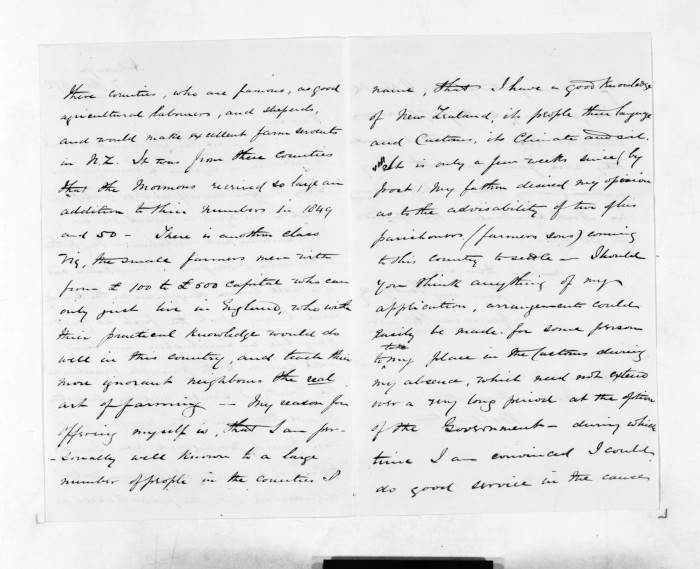 these counties, who are famous, as good
agricultural labourers, and sheperds,
and would make excellent farm servants
in N.Z. It was from these counties
that the Mormons received so large an
addition to their numbers in 1849
and 50 - There is another class
viz, the small farmers men with
from £100 to £500 capital who can
only just live in England, who with
their practical knowledge would do
well in this country, and teach their
more ignorant neighbours the real
art of farming - My reason for
offering myself is, that I am per-
-sonally well known to a large
number of people in the counties I
name, that I have a good knowledge
of New Zealand, its people their language
and Customs, its Climate and soil.
It is only a few weeks since (by
post) my father desired my opinion
as to the advisability of two of his
parishoners (farmers sons) coming
to this country to settle - Should
you think anything of my
application, arrangements could
easily be made for some person
to my place in the Customs during
my absence, which need not extend
over a very long period at the option
of the Government - during which
time I am convinced I could
do good service in the cause